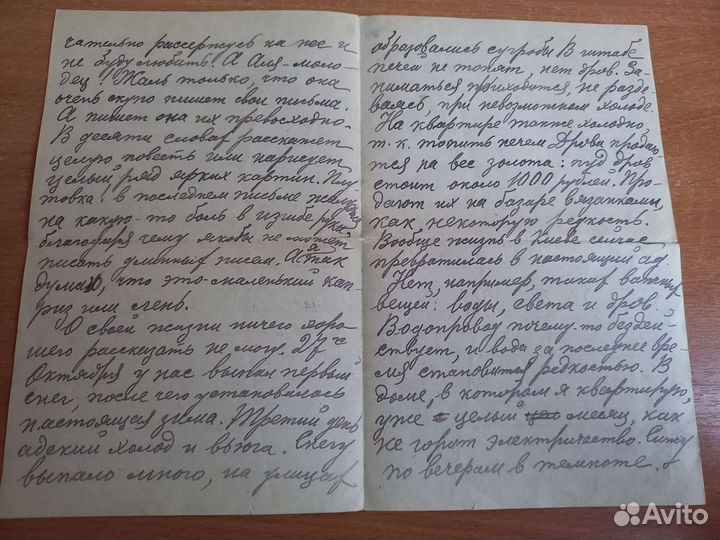 чательно рассержусь на нее и
не буду любить! А Аля-моло-
дец! Жаль только, что она
очень скупо пишет свои письма.
А пишет она их превосходно.
В десяти словах расскажет
целую повесть или нарисует
целый ряд ярких картин. Плу-
товка! в последнем письме жалуется
на какую-то боль в изгибе руки,
благодаря чему якобы не может
писать длинных писем. А я так
думаю, что это-маленький кап-
риз или лень.
О своей жизни ничего хоро-
шего рассказать не могу. 27 го
Октября у нас выпал первый
снег, после чего установилась
настоящая зима. Третий день
адский холод и вьюга. Снегу
выпало много, на улицах
образовались сугробы В штабе
печей не топят, нет дров. За-
ниматься приходится, не разде-
ваясь, при невозможном холоде
На квартире также холодно
т. к. топить нечем Дрова прода-
ются на вес золота: пуд дров
стоит около 1000 рублей. Про-
дают их на базаре вязанками,
как некоторую редкость.
Вообще жизнь в Киеве сейчас
превратилась в настоящий ад.
Нет, например, таких важных
вещей: воды, света и дров.
Водопровод почему-то бездей-
ствует, и вода за последнее вре-
мя становится редкостью. В
доме, в котором я квартирую,
уже целый месяц, как
не горит электричество. Сижу
по вечерам в темноте.
Avito